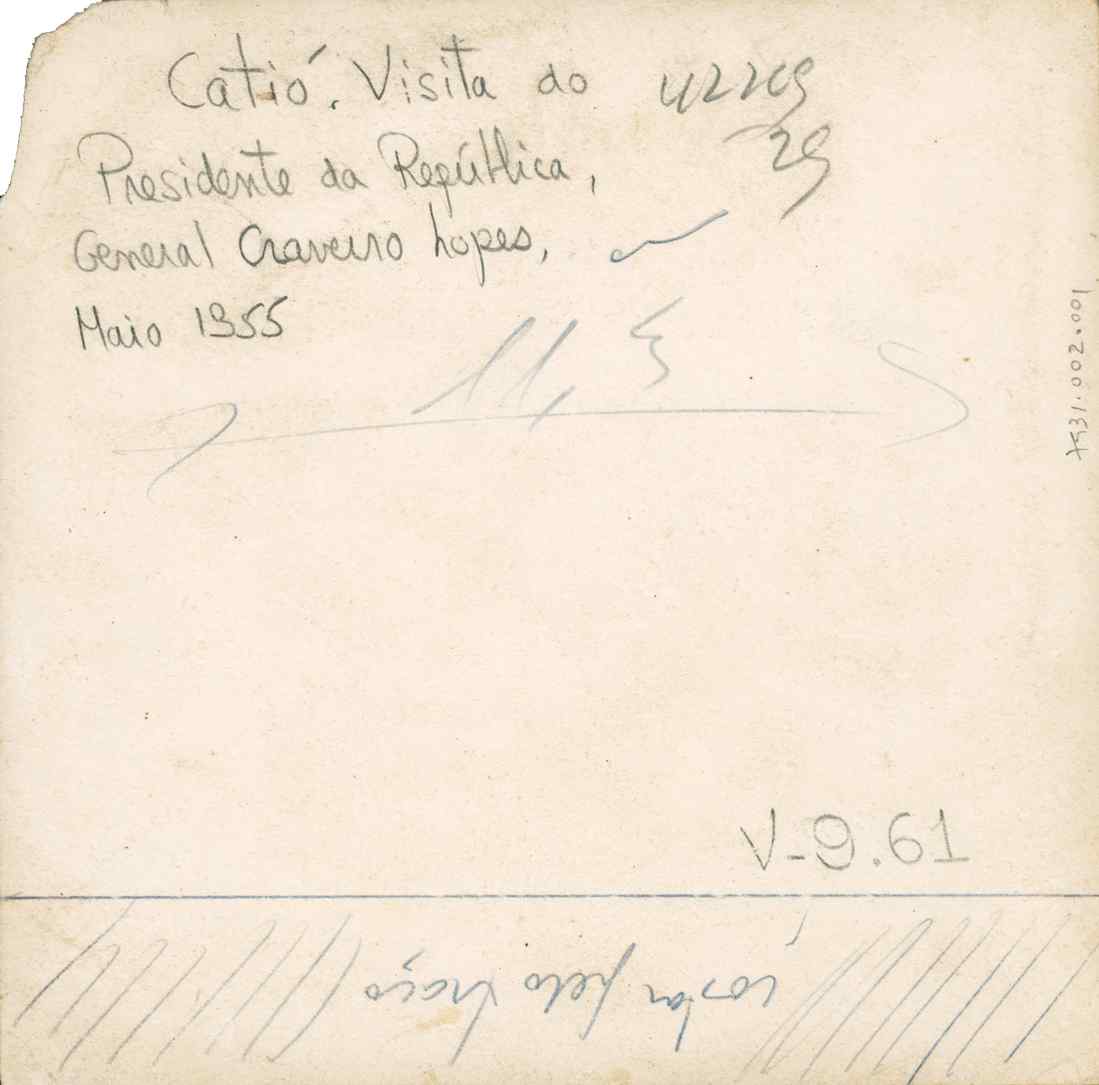 Catió. Visita do
Presidente da República,
General Craveiro Lopes,
Maio 1955
29
11,5
V-9.61
cortar pelo traço
7531.002.001